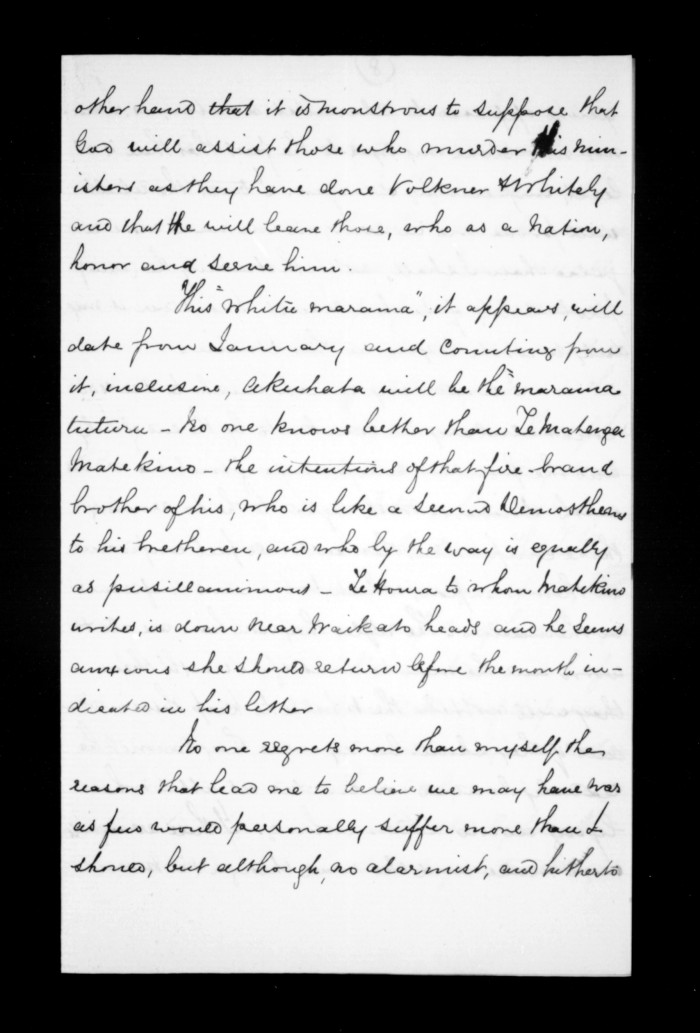 other hand that it is monstrous to suppose that
God will assist those who murder His min-
isters as they have done Volkner & Whitely
and that He will leave those, who as a Nation,
honor and serve him.
This "white marama", it appears, will
date from January and counting from
it, inclusive, Akuhata will be the "marama
tuturu - No one knows better than Te Mahenga
Matekino - the intentions of that fire-brand
brother of his, who is like a second Demosthenes
to his bretheren, and who by the way is equally
as pusillanimous - Te Houra to whom Matekino
writes, is down near Waikato heads and he seems
anxious she should return before the month in-
dicated in his letter
No one regrets more than myself the
reasons that lead me to believe we may have war
as few would personally suffer more than I
should, but although, no alarmist, and hitherto